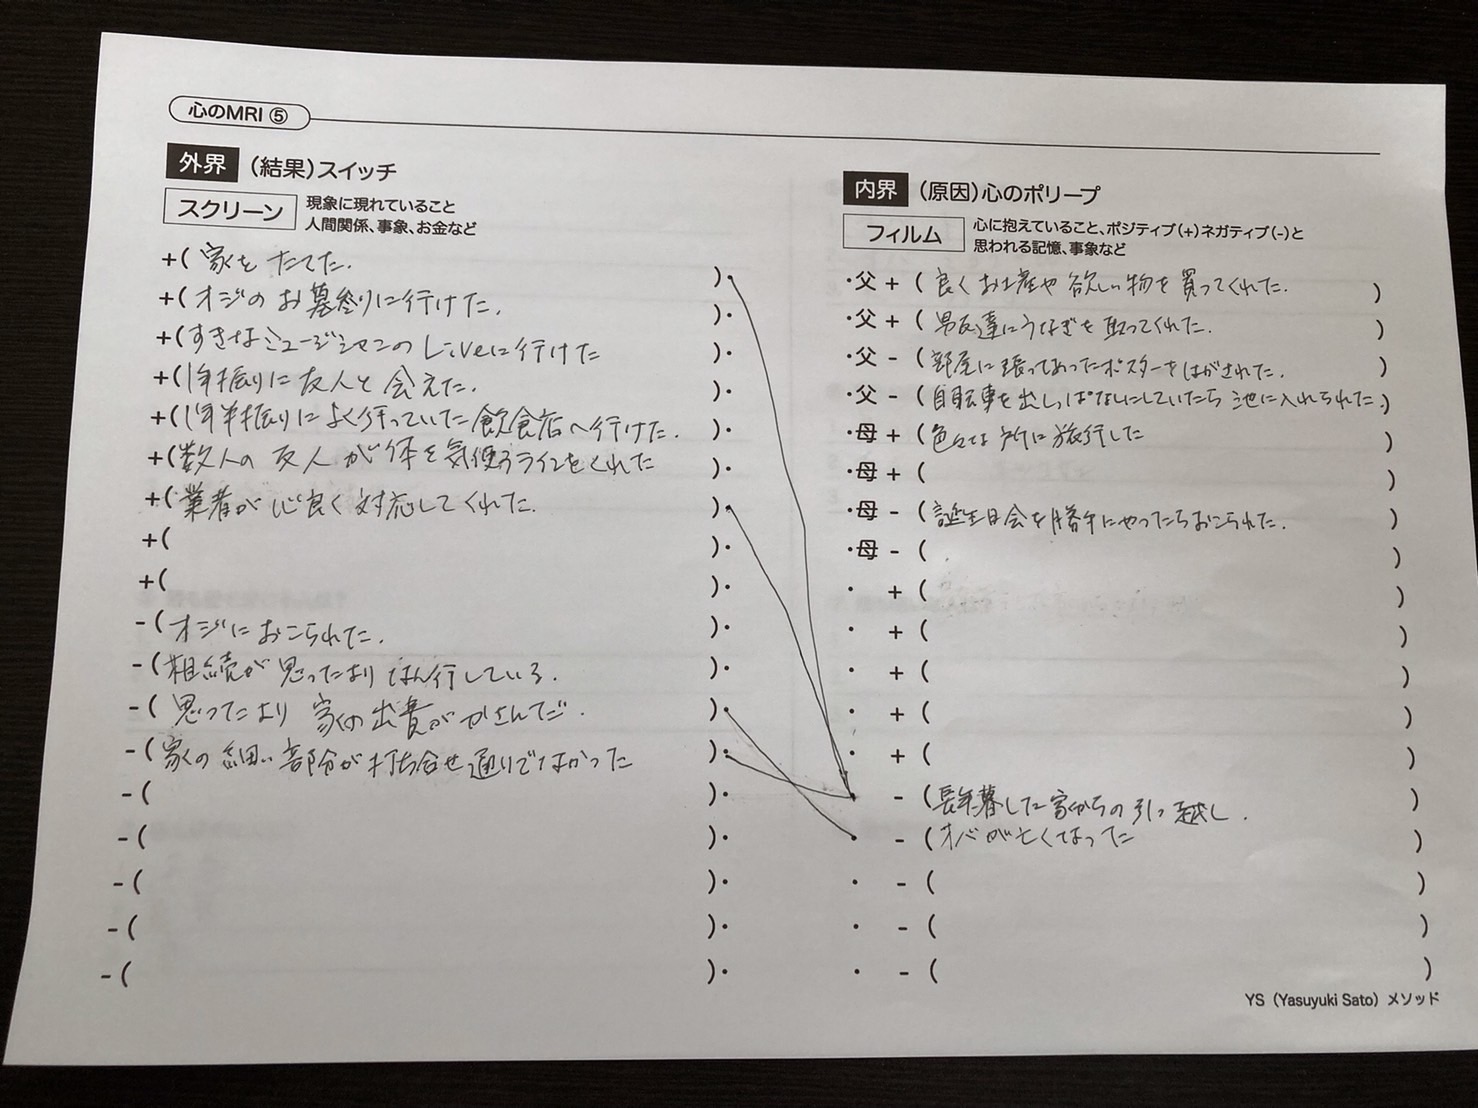 心のMRI ⑤
外界 (結果)スイッチ
スクリーン 現象に現れていること
人間関係、事象、お金など
+( 家を たてた. )・
+( オジの お墓参りに行けた. )・
+( すきなミュージシャンの Liveに行けた )・
+( 1年振りに 友人と 会えた. )・
+( 1年半振りに よく行っていた 飲食店へ行けた. )・
+( 数人の 友人が 体を気使うラインをくれた )・
+( 業者が 心良く 対応してくれた. )・
+( )・
+( )・
-( オジに おこられた. )・
-( 相続が 思ったより なん行している. )・
-( 思ったより 家の出費がかさんだ. )・
-( 家の 細い 部分が 打ち合せ 通りでなかった )・
-( )・
-( )・
-( )・
-( )・
-( )・
内界 (原因)心のポリープ
フィルム 心に抱えていること、ポジティブ(+)ネガティブ(-)と
思われる記憶、事象など
・父 + ( 良く お土産や 欲しい物を 買ってくれた. )
・父 + ( 男友達にうなぎを 取ってくれた. )
・父 - ( 部屋に 張ってあったポスターを はがされた. )
・父 - ( 自転車を出しっぱなしにしていたら 池に入れられた. )
・母 + ( 色々な 所に 旅行した )
・母 + ( )
・母 - ( 誕生日会を 勝手にやったらおこられた. )
・母 - ( )
・ + ( )
・ + ( )
・ + ( )
・ + ( )
・ + ( )
・ - ( 長年暮した 家からの 引っ越し. )
・ - ( オバが亡くなった )
・ - ( )
・ - ( )
・ - ( )
YS (Yasuyuki Sato) メソッド